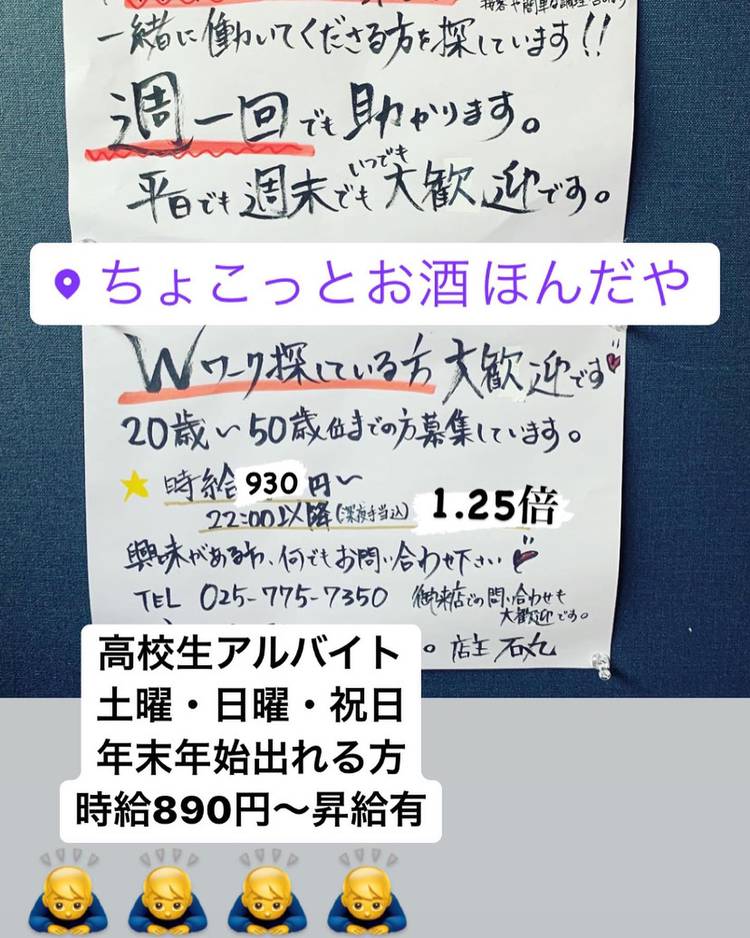 一緒に働いてくださる方を探しています!!
週一回でも助かります。
いつでも
平日でも週末でも大歓迎です。
ちょこっとお酒 ほんだや
Wワーク探している方 大歓迎です
20歳〜50歳位までの方募集しています。
時給 930 円〜
22:00以降(深夜手当込) 1.25倍
興味がある方、何でもお問い合わせ下さい
TEL 025-775-7350 御来店での問い合わせも
大歓迎です。
店主 石丸
高校生アルバイト
土曜・日曜・祝日
年末年始出れる方
時給890円〜昇給有